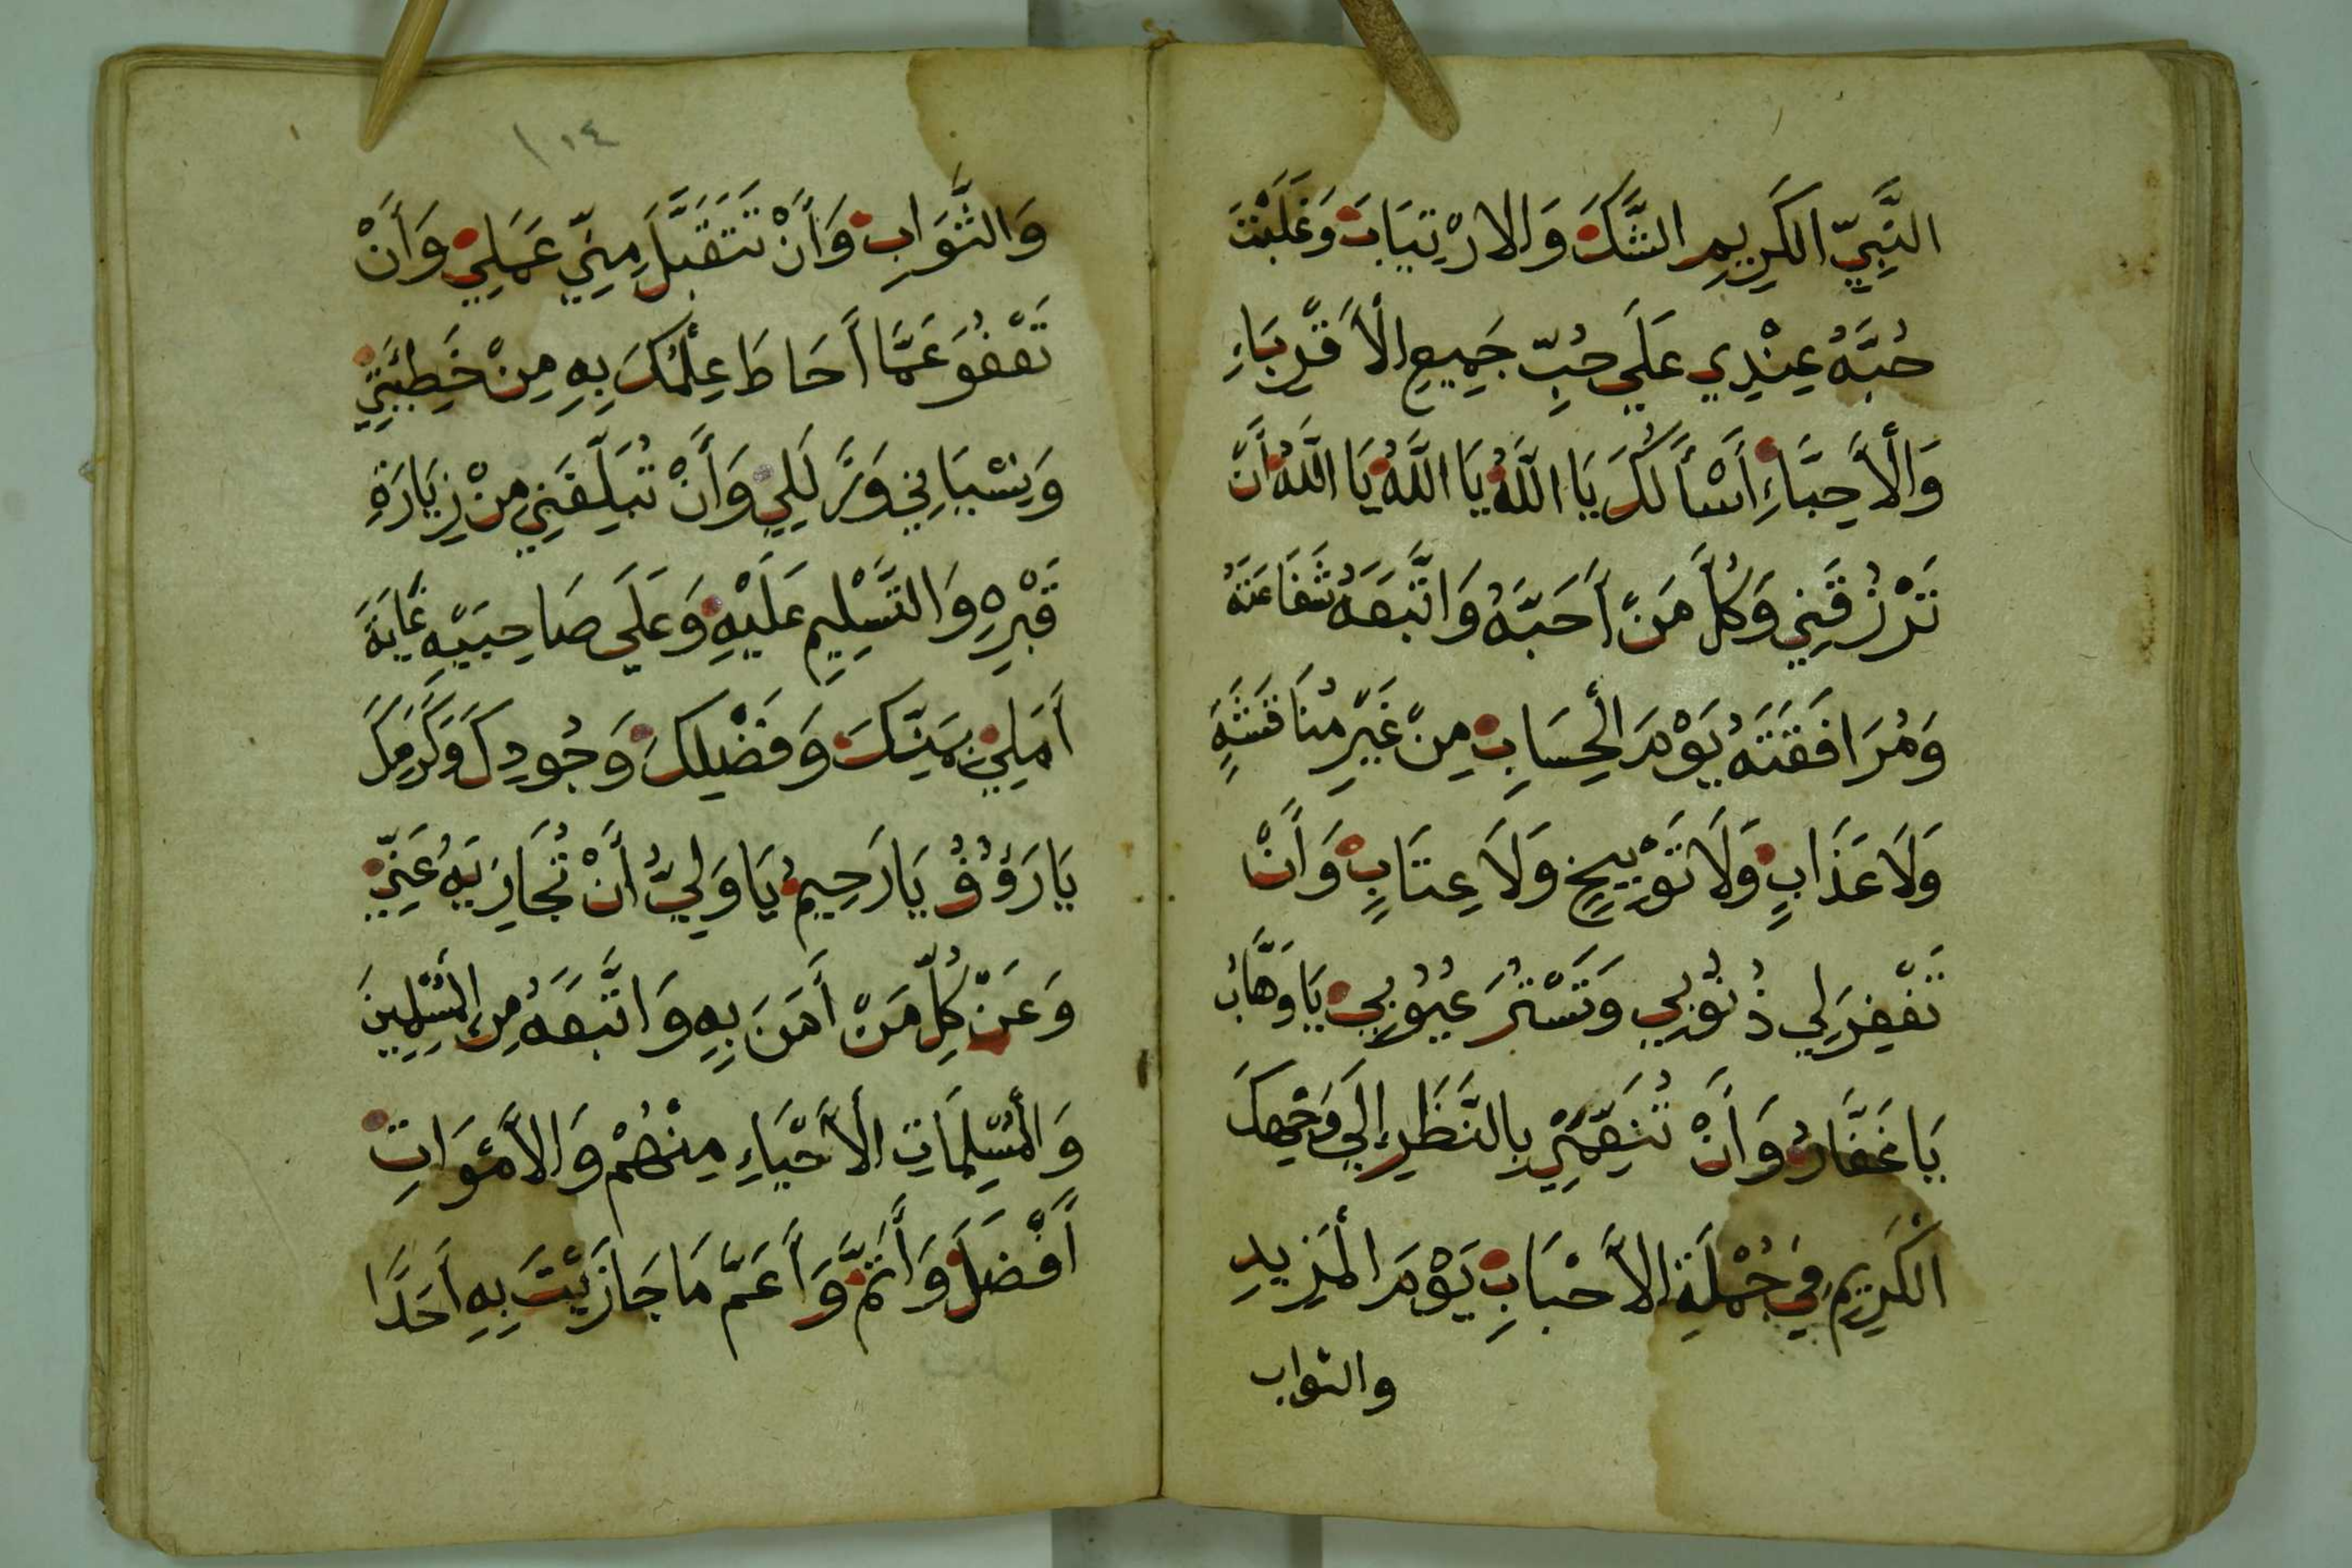 النَّبِيِّ الكَرِيمِ الشَّكَّ وَالارْتِيَابَ وَغَلَّبْتَ
حُبَّهُ عِنْدِي عَلَى حُبِّ جَمِيعِ الْأَقْرِبَاءِ
وَالْأَحِبَّاءِ أَسْأَلُكَ يَا اللَّهُ يَا اللَّهُ يَا اللَّهُ أَنْ
تَرْزُقَنِي وَكُلَّ مَنْ أَحَبَّهُ وَاتَّبَعَهُ شَفَاعَتَهُ
وَمُرَافَقَتَهُ يَوْمَ الْحِسَابِ مِنْ غَيْرِ مُنَاقَشَةٍ
وَلَا عَذَابٍ وَلَا تَوْبِيخٍ وَلَا عِتَابٍ وَأَنْ
تَغْفِرَ لِي ذُنُوبِي وَتَسْتُرَ عُيُوبِي يَا وَهَّابُ
يَا غَفَّارُ وَأَنْ تُنَعِّمَنِي بِالنَّظَرِ إِلَى وَجْهِكَ
الْكَرِيمِ فِي جُمْلَةِ الْأَحْبَابِ يَوْمَ الْمَزِيدِ
والثواب
١٠٤
وَالثَّوَابِ وَأَنْ تَتَقَبَّلَ مِنِّي عَمَلِي وَأَنْ
تَعْفُوَ عَمَّا أَحَاطَ عِلْمُكَ بِهِ مِنْ خَطِيئَتِي
وَنِسْيَانِي وَزَلَلِي وَأَنْ تُبَلِّغَنِي مِنْ زِيَارَةِ
قَبْرِهِ وَالتَّسْلِيمِ عَلَيْهِ وَعَلَى صَاحِبَيْهِ غَايَةَ
أَمَلِي بِمَنِّكَ وَفَضْلِكَ وَجُودِكَ وَكَرَمِكَ
يَا رَؤُفُ يَا رَحِيمُ يَا وَلِيُّ أَنْ تُجَازِيَهُ عَنِّي
وَعَنْ كُلِّ مَنْ أَمَنَ بِهِ وَاتَّبَعَهُ مِنَ الْمُسْلِمِينَ
وَالْمُسْلِمَاتِ الْأَحْيَاءِ مِنْهُمْ وَالْأَمْوَاتِ
أَفْضَلَ وَأَتَمَّ وَأَعَمَّ مَا جَازَيْتَ بِهِ أَحَدًا